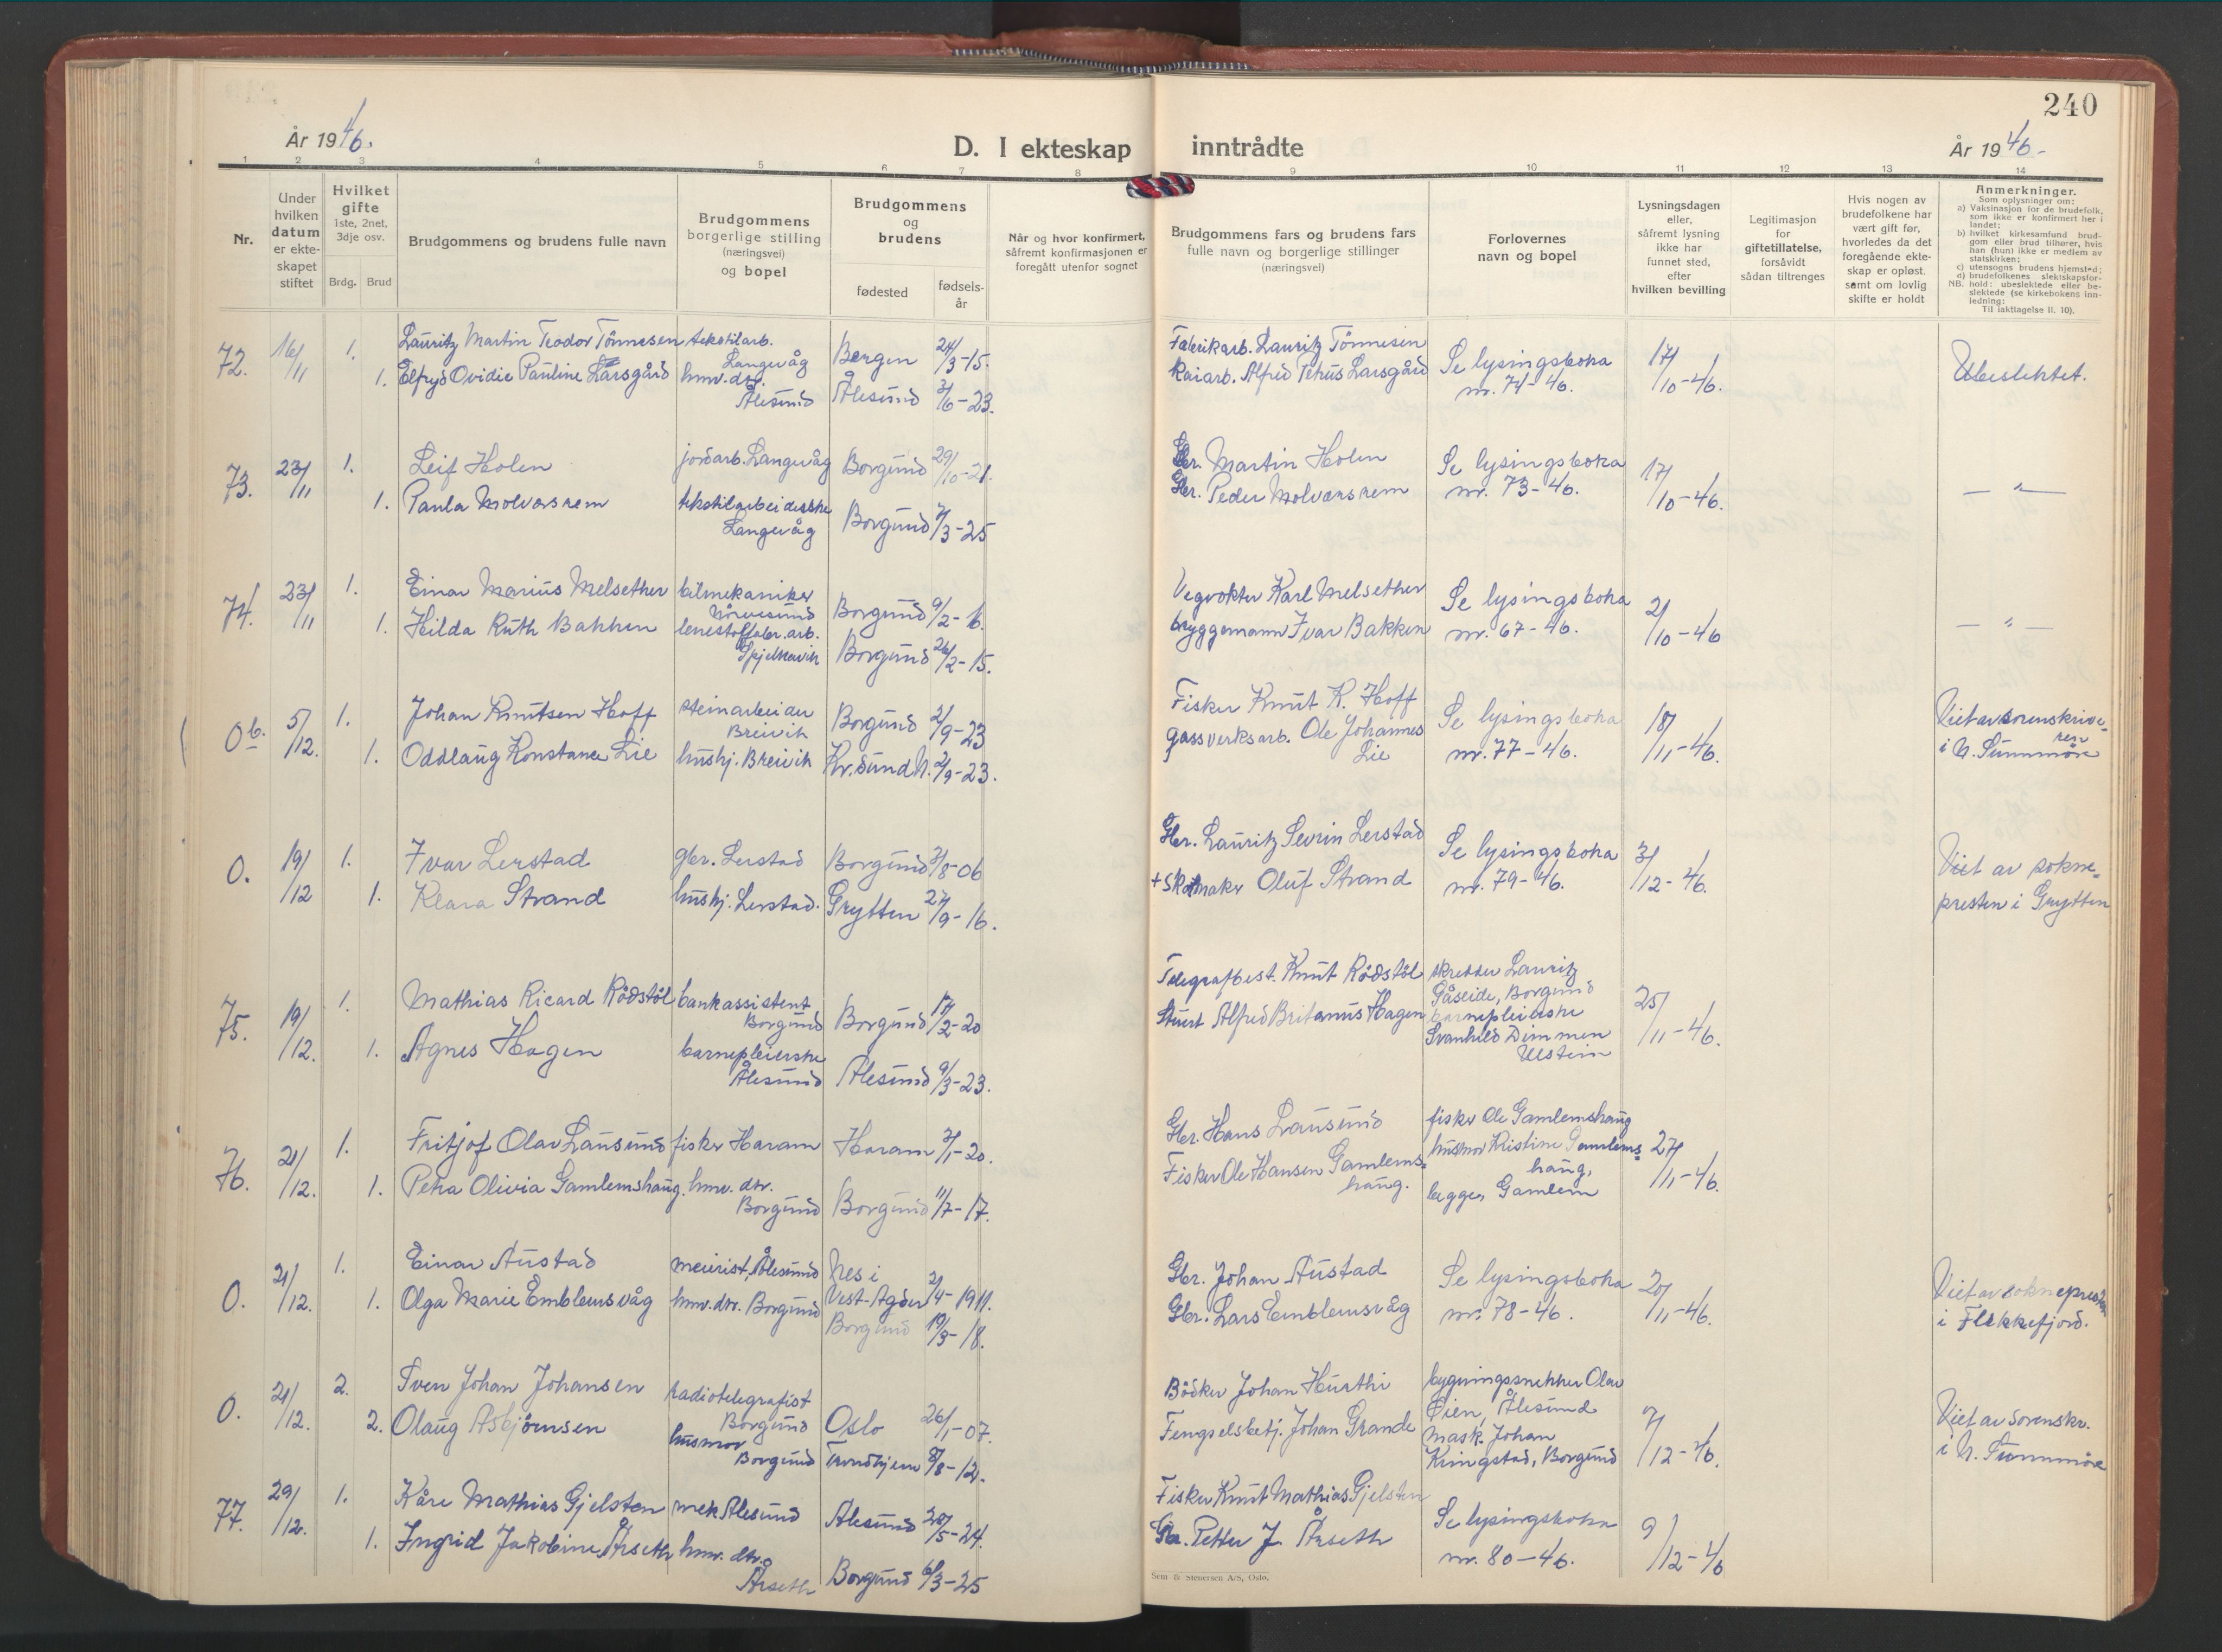 240
År 1946.
D. I ekteskap inntrådte
År 1946-
1 2 3 4 5 6 7 8 9 10 11 12 13 14
Nr.
Under
hvilken
datum
er ekte-
skapet
stiftet
Hvilket
gifte
1ste, 2net,
3dje osv.
Brdg. Brud
Brudgommens og brudens fulle navn
Brudgommens
borgerlige stilling
(næringsvei)
og bopel
Brudgommens
og
brudens
fødested
fødsels-
år
Når og hvor konfirmert,
såfremt konfirmasjonen er
foregått utenfor sognet
Brudgommens fars og brudens fars
fulle navn og borgerlige stillinger
(næringsvei)
Forlovernes
navn og bopel
Lysningsdagen
eller,
såfremt lysning
ikke har
funnet sted,
efter
hvilken bevilling
Legitimasjon
for
giftetillatelse,
forsåvidt
sådan tiltrenges
Hvis nogen av
brudefolkene har
vært gift før,
hvorledes da det
foregående ekte-
skap er opløst.
samt om lovlig
skifte er holdt
Anmerkninger.
Som oplysninger om:
a) Vaksinasjon for de brudefolk,
som ikke er konfirmert her i
landet;
b) hvilket kirkesamfund brud-
gom eller brud tilhører, hvis
han (hun) ikke er medlem av
statskirken;
c) utensogns brudens hjemsted;
d) brudefolkenes slektskapsfor-
NB. hold: ubeslektede eller be-
slektede (se kirkebokens inn-
ledning:
Til iakttagelse II. 10).
72. 16/11 1. Lauritz Martin Teodor Tönnesen tekstilarb. Langevåg Bergen 24/3-15. Fabrikarb. Lauritz Tönnesen Se lysingsboka nr. 74-46. 17/10-46. Ubeslektet.
1. Elfryd Ovidie Pauline Larsgård hmv. dtr. Ålesund Ålesund 3/6-23. Kaiarb. Alfred Petrus Larsgård
73. 23/11 1. Leif Holen jordarb. Langevåg Borgund 29/10-21. Gbr. Martin Holen Se lysingsboka nr. 73-46. 17/10-46. — " —
1. Paula Molværsrem tekstilarbeiderske Langevåg Borgund 7/3-25 Gbr. Peder Molværsrem
74. 23/11 1. Einar Marius Melsether bilmekaniker Nörvesund Borgund 9/2-16. Vegvokter Karl Melsether Se lysingsboka nr. 67-46. 2/10-46 — " —
1. Hilda Ruth Bakken lenestolfabr. arb. Spjelkavik Borgund 26/2-15. bryggemann Ivar Bakken
0b. 5/12. 1. Johan Knutsen Hoff steinarbeider Breivik Borgund 2/9-23 Fisker Knut K. Hoff Se lysingsboka nr. 77-46. 18/11-46. Viet av sorenskriveren i N. Sunnmöre
1. Oddlaug Konstance Lie hushj. Breivik Kr.sund N. 2/9-23. gassverksarb. Ole Johannes Lie
0. 19/12 1. Ivar Lerstad gbr. Lerstad Borgund 3/8-06 Gbr. Lauritz Sevrin Lerstad Se lysingsboka nr. 79-46. 3/12-46. Viet av sokne=
presten i Grytten
1. Klara Strand hushj. Lerstad. Grytten 27/9-16. + Skomaker Oluf Strand
75. 19/12. 1. Mathias Ricard Rödstöl bankassistent Borgund Borgund 17/2-20 Telegrafbest. Knut Rödstöl skredder Lauritz Gåseide, Borgund 25/11-46.
1. Agnes Hagen barnepleierske Ålesund Ålesund 9/3-23. Stuert Alfred Britanus Hagen barnepleierske Svanhild Dimmen Ulstein
76. 21/12. 1. Fritjof Olav Lausund fisker Haram Haram 3/1-20. Gbr. Hans Lausund fisker Ole Gamlemshaug 27/11-46.
1. Petra Olivia Gamlemshaug. hmv. dtr. Borgund Borgund 11/7-17. Fisker Ole Hansen Gamlems=
haug. husmor Kristine Gamlems=
haug,
begge, Gamlem
0. 21/12. 1. Einar Austad meierist, Ålesund Nes i Vest-Agder 2/4-1911. Gbr. Johan Austad Se lysingsboka nr. 78-46. 20/11-46. Viet av soknepresten i Flekkefjord.
1. Olga Marie Emblemsvåg hmv. dtr. Borgund Borgund 19/3-18. Gbr. Lars Emblemsvåg
0. 21/12. 2. Sven Johan Johansen radiotelegrafist Borgund Oslo 26/1-07. Bödker Johan Hurthi bygningssnekker Olav Öien, Ålesund 7/12-46. Viet av Sorenskr. i N. Sunnmöre
2. Olaug Asbjörnsen husmor Borgund Trondhjem 8/8-12. Fengselsbetj. Johan Grande Mask. Johan Kringstad, Borgund
77. 29/12. 1. Kåre Mathias Gjelsten mek Ålesund Ålesund 20/5-24. Fisker Knut Mathias Gjelsten Se lysingsboka nr. 80-46. 9/12-46
1. Ingrid Jakobine Årseth hmv. dtr. Årseth Borgund 6/3-25 Gbr. Petter J. Årseth
Sem & Stenersen A/S, Oslo.